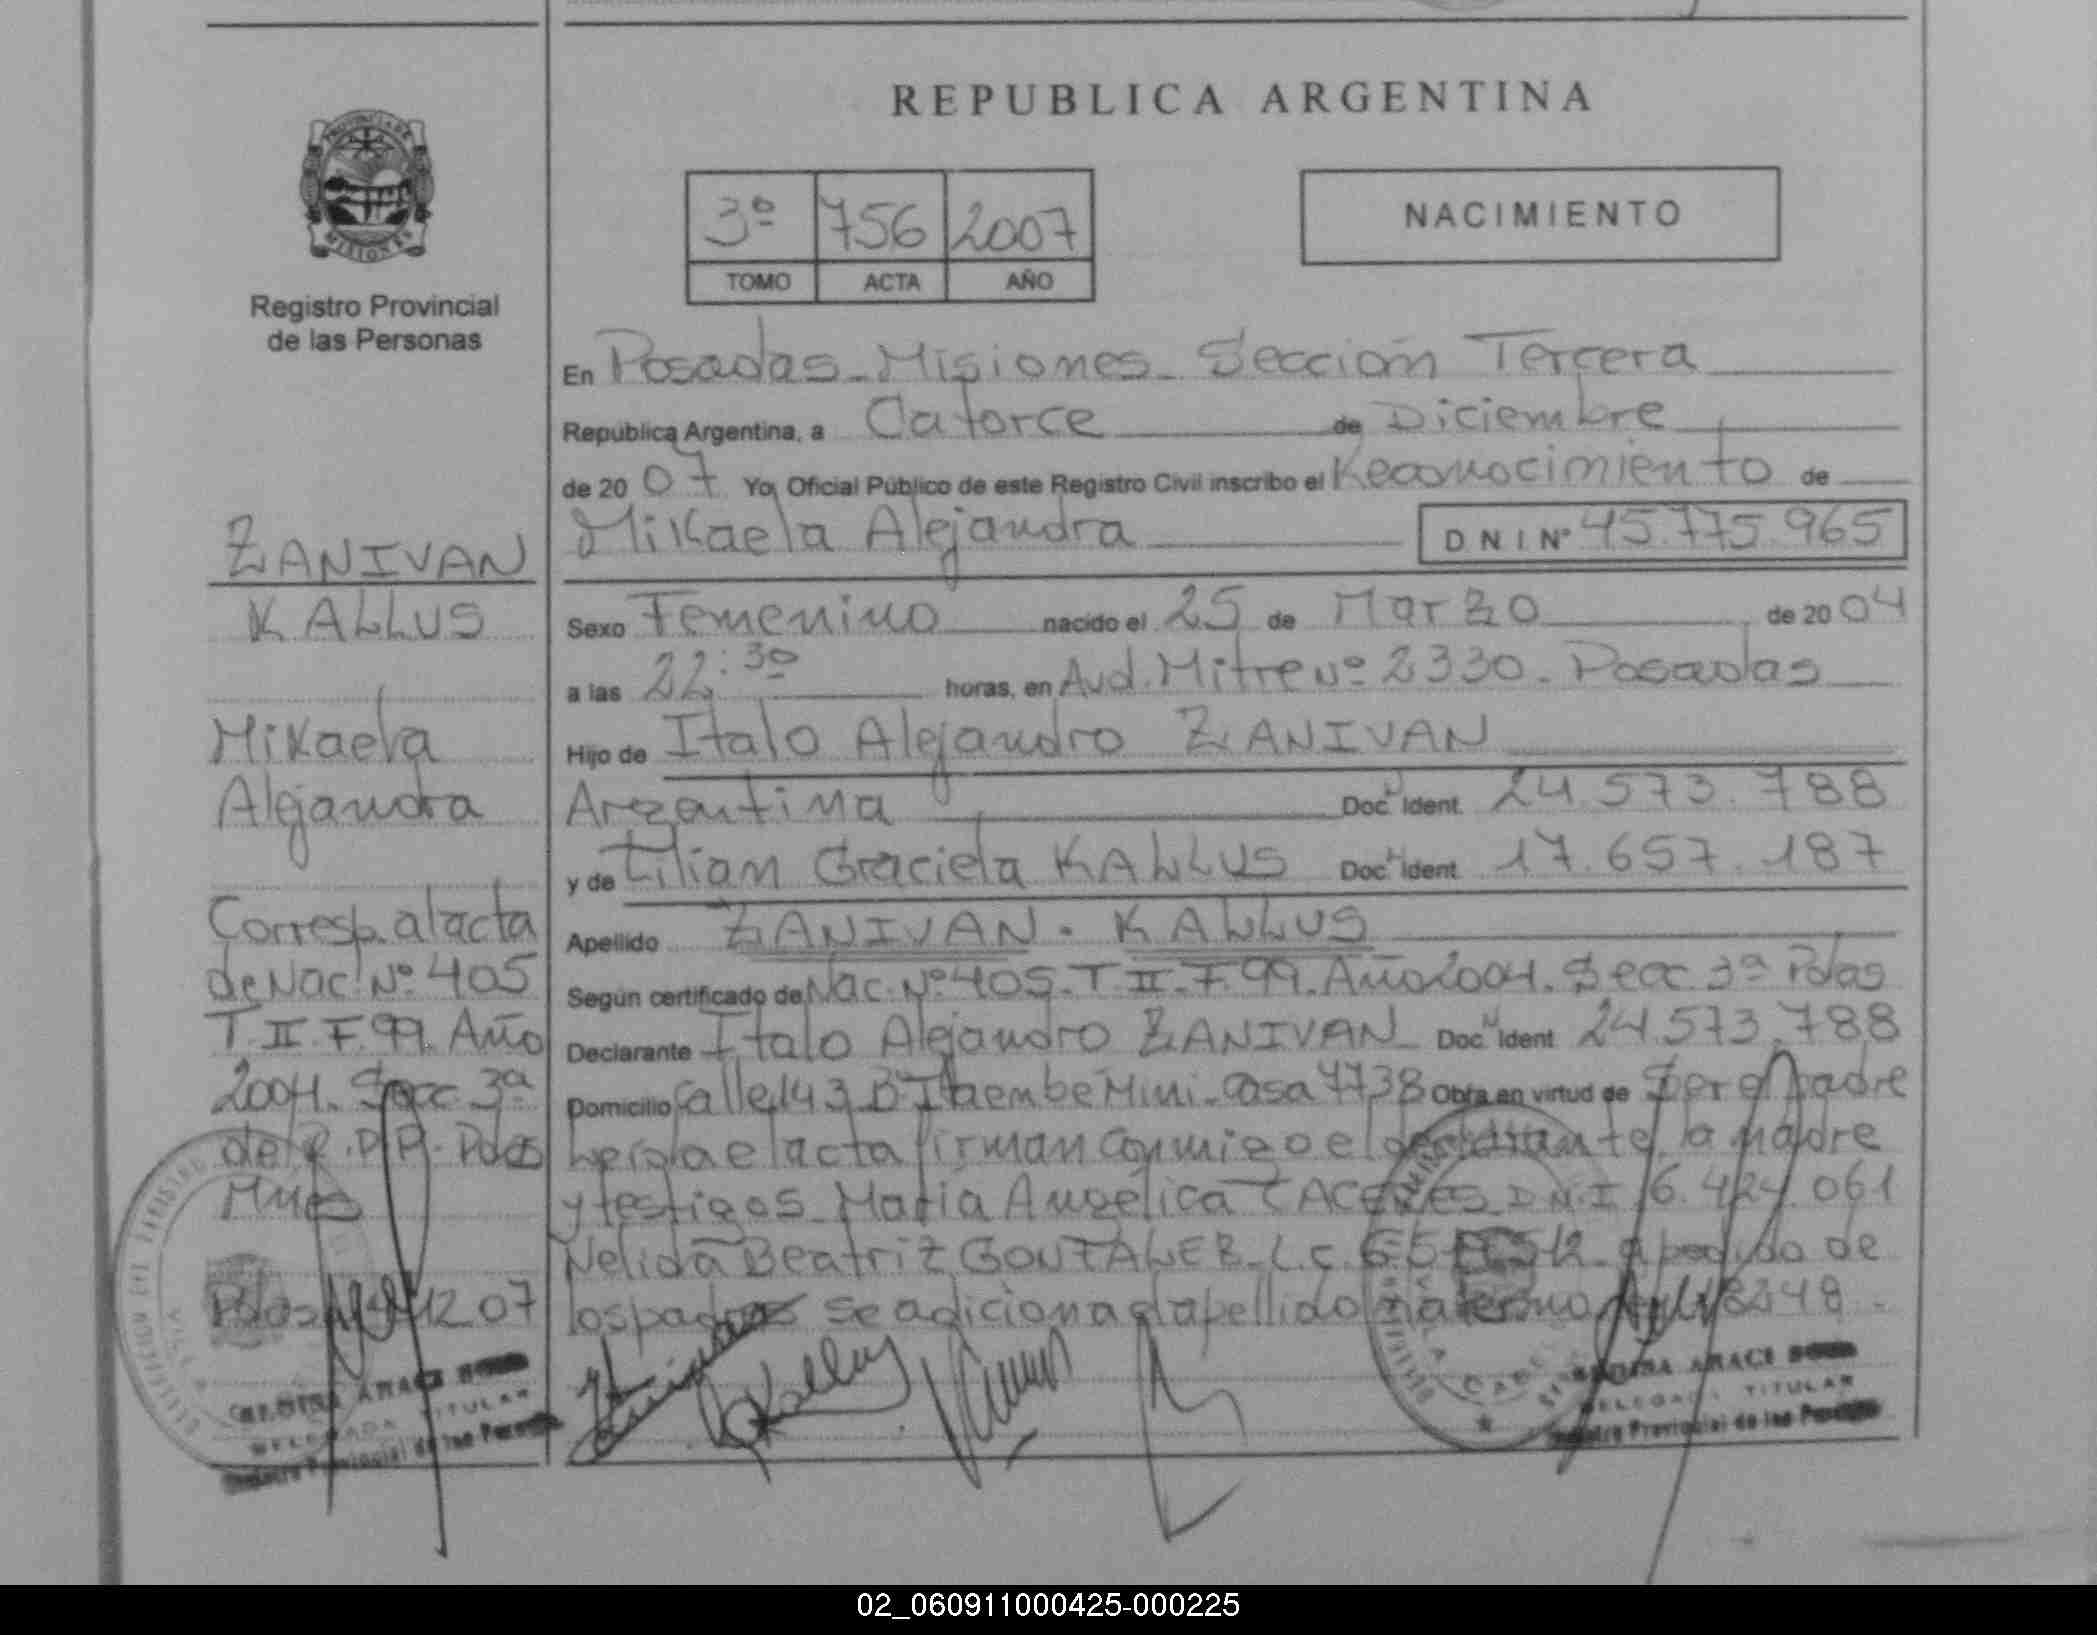 REPUBLICA ARGENTINA
PROVINCIA DE
MISIONES
Registro Provincial
de las Personas
3º 756 2007
TOMO ACTA AÑO
NACIMIENTO
En Posadas - Misiones - Sección Tercera
Republica Argentina, a Catorce de Diciembre
de 20 07 Yo, Oficial Público de este Registro Civil inscribo el Reconocimiento de
Mikaela Alejandra D N I Nº 45.775.965
Sexo Femenino nacido el 25 de Marzo de 20 04
a las 22:30 horas, en Avd. Mitre Nº 2330 - Posadas
Hijo de Italo Alejandro ZANIVAN
Argentina Doc. Ident. 24.573.788
y de Lilian Graciela KALLUS Doc. Ident. 17.657.187
Apellido ZANIVAN - KALLUS
Según certificado de Nac. Nº 405 - T. II - F. 99. Año 2004. Secc. 3ª Pdas
Declarante Italo Alejandro ZANIVAN Doc. Ident 24.573.788
Domicilio Calle 143 Bº Itaembe Mini - Casa Obra en virtud de Ser el padre
leida el acta firman conmigo el declarante, la madre
y testigos - Maria Angélica CACERES D.N.I. 6.424.061
Nelida Beatriz GONZALEZ - L.C. a pedido de
los padres se adiciona el apellido materno 18248 -
ZANIVAN
KALLUS
Mikaela
Alejandra
Corresp. al acta
de Nac. Nº 405
T. II F. 99. Año
2004. Secc. 3ª
del R.P.P. - Pdas
Mnes
Pdas 14 12 07
ARACI
DELEGADA TITULAR
Registro Provincial de las Personas
ARACI
DELEGADA TITULAR
Registro Provincial de las Personas
02_060911000425-000225